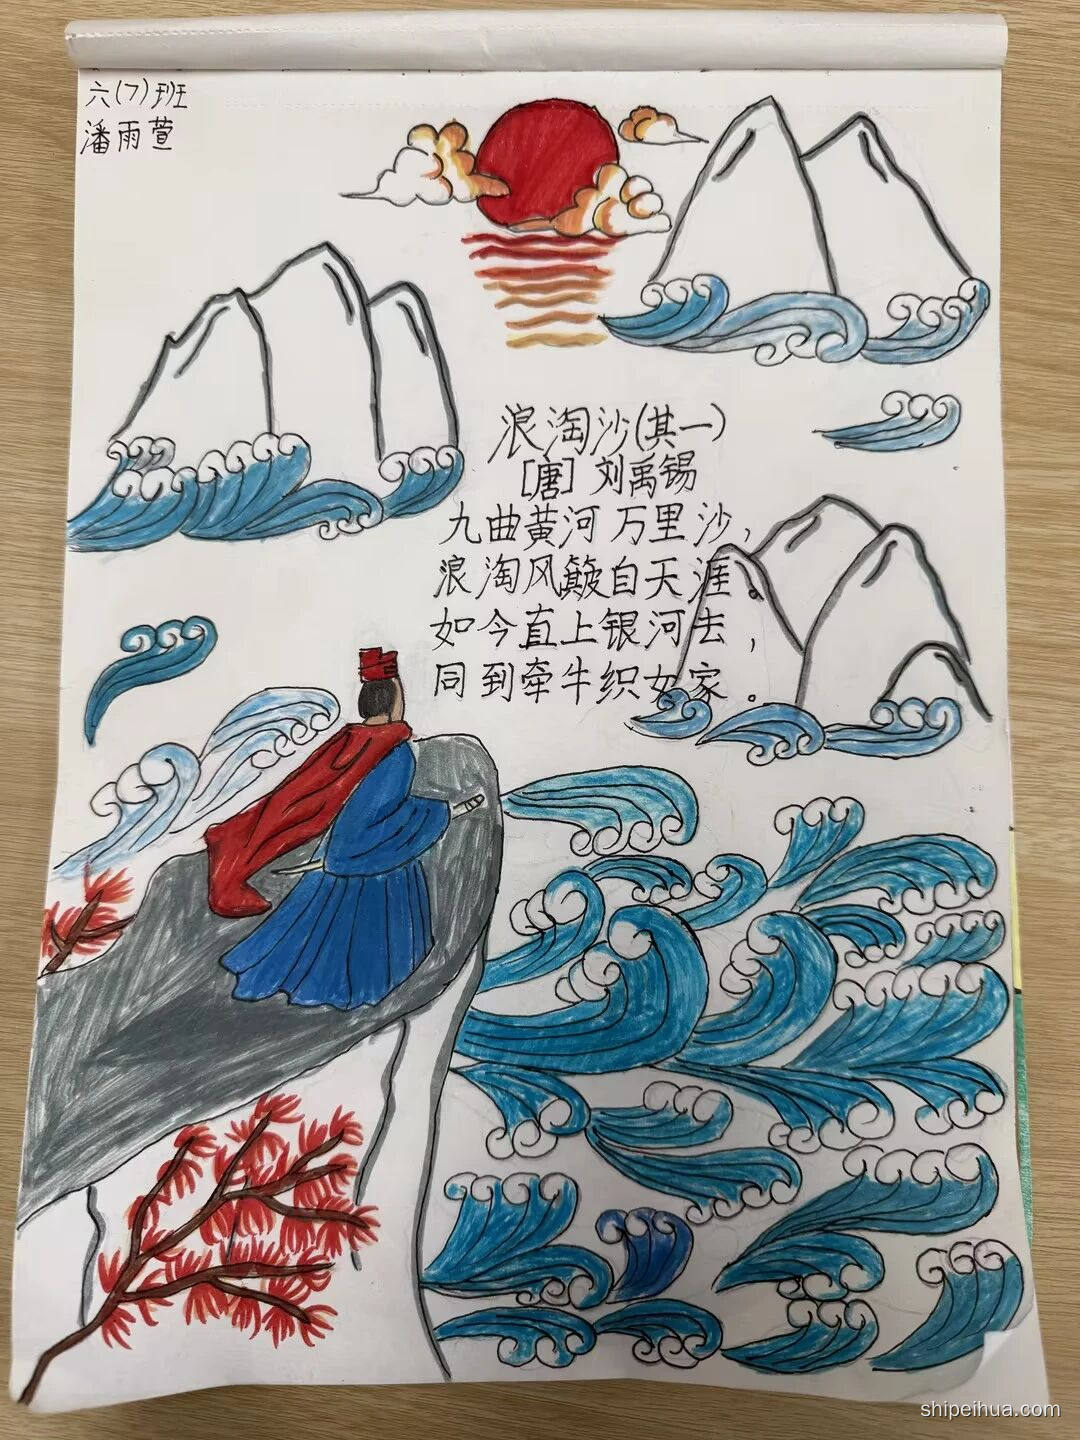 六(7)班
潘雨萱
浪淘沙(其一)
[唐] 刘禹锡
九曲黄河万里沙，
浪淘风簸自天涯。
如今直上银河去，
同到牵牛织女家。
shipeihua.com